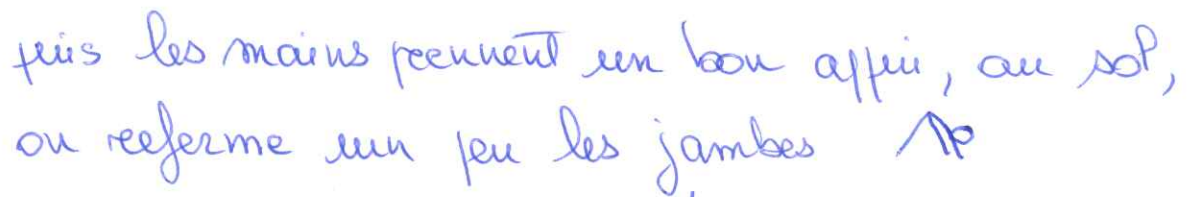 puis les mains prennent un bon appui, au sol,
on referme un peu les jambes